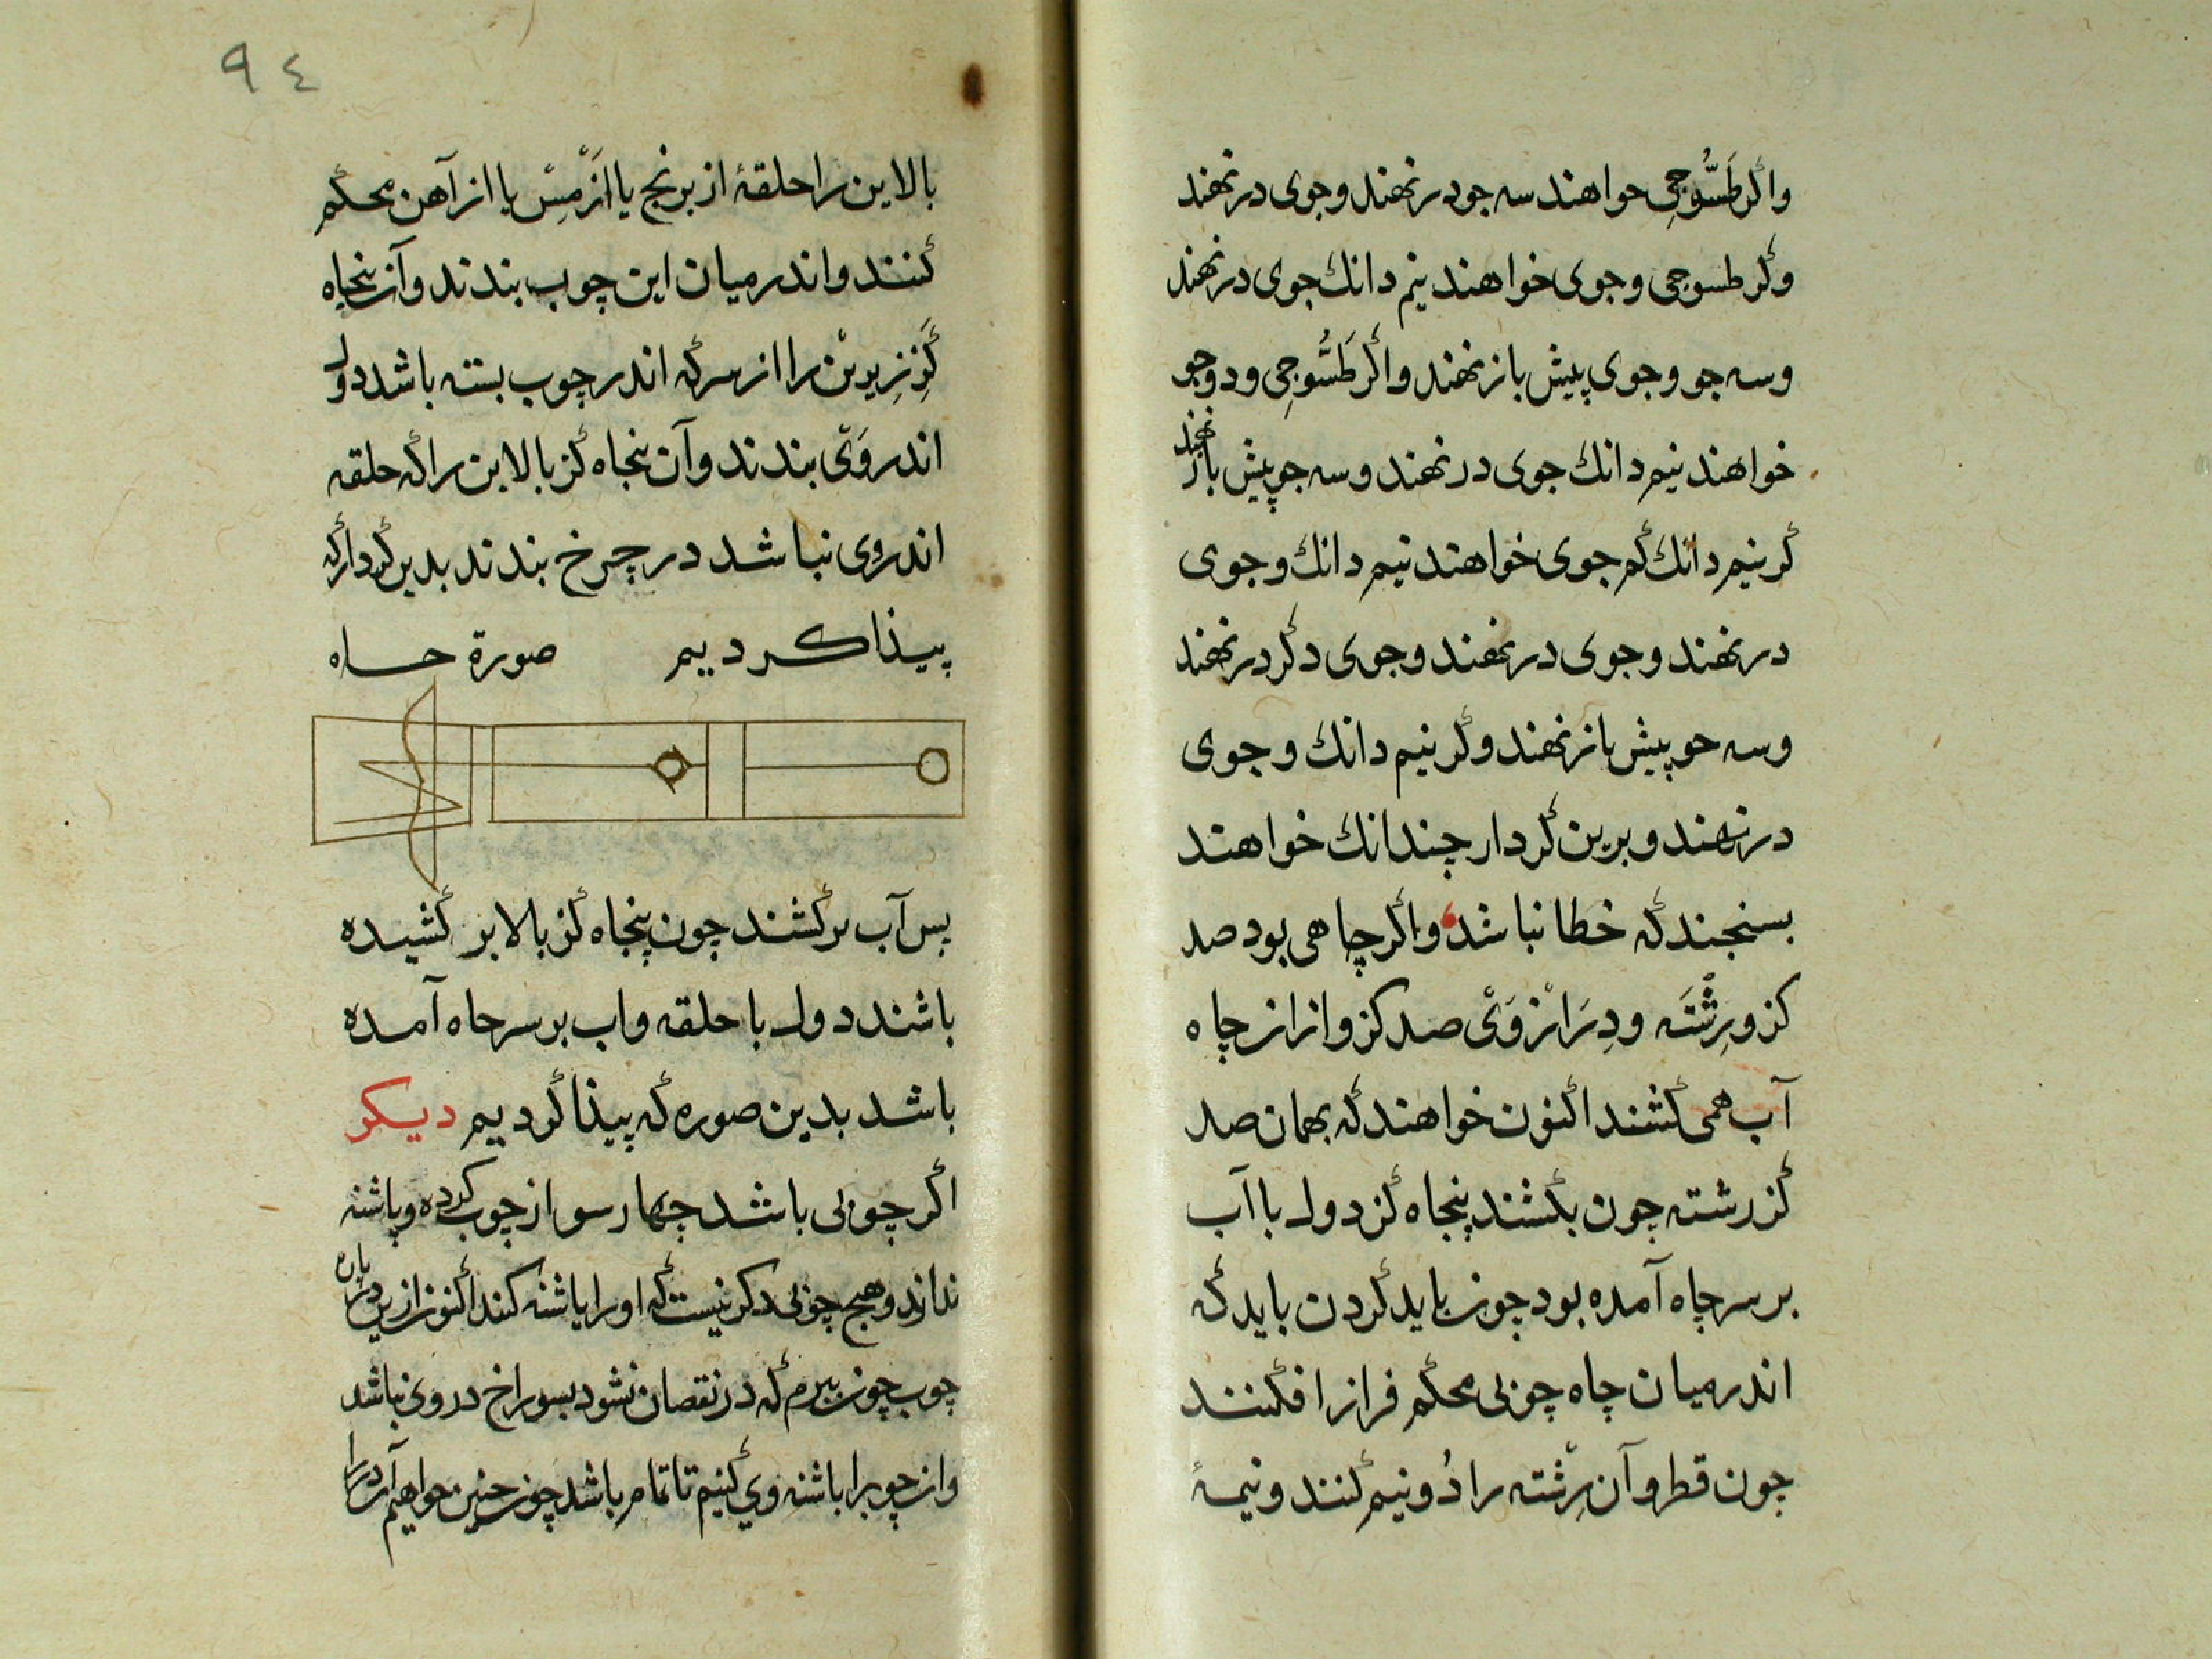 واگر طَسُّوجِی خواهند سه جو درنهند وجوی درنهند
وگر طسوجی وجوی خواهند نیم دانك جوی درنهند
وسه جو وجوی پیش بازنهند واگر طَسُّوجِی ودوجو
خواهند نیم دانك جوی درنهند وسه جو پیش بازنهند
گر نیم دانك گم جوی خواهند نیم دانك وجوی
درنهند وجوی درنهند وجوی دگر درنهند
وسه جو پیش بازنهند وگر نیم دانك وجوی
درنهند وبرین گردار چندانك خواهند
بسنجند گه خطا نباشد واگر چاهی بود صد
کز ورِشْتَه ودِرَازْوَیْ صد کز واز از چاه
آب همی گشند اگنون خواهند گه بهمان صد
گز رشته چون بگشند پنجاه گز دول باآب
بر سر چاه آمده بود چون باید گردن باید گه
اندر میان چاه چوبی محگم فراز افگنند
چون قطر وآن رِشْته را دُونیم گنند ونیمهٔ
٩٤
بالاین را حلقهٔ از برنج یا ازمِسْ یا از آهن محگم
گنند واندر میان این چوب بندند وآن پنجاه
گَزِ زِیرینْ را از سر گه اندر چوب بسته باشد دول
اندروَیْ بندند وآن پنجاه گز بالاین را گه حلقه
اندروی نباشد در چرخ بندند بدین گردار گه
پیذا کردیم صورة چاه
پس آب برگشند چون پنجاه گز بالا بر گشیده
باشند دول با حلقه واب بر سر چاه آمده
باشد بدین صوره گه پیذا گردیم دیکر
اگر چوبی باشد چهارسو از چوب کرده وپاشنه
نداند وهیچ چوبی دکر نیست گه اورا پاشنه کند اگنون ازین پاره
چوب چون ببرم گه در نقصان نشود بسوراخ دروی نباشد
واز چوبرا باشنه وی گنیم تا تمام باشد چون چنین خواهیم آن